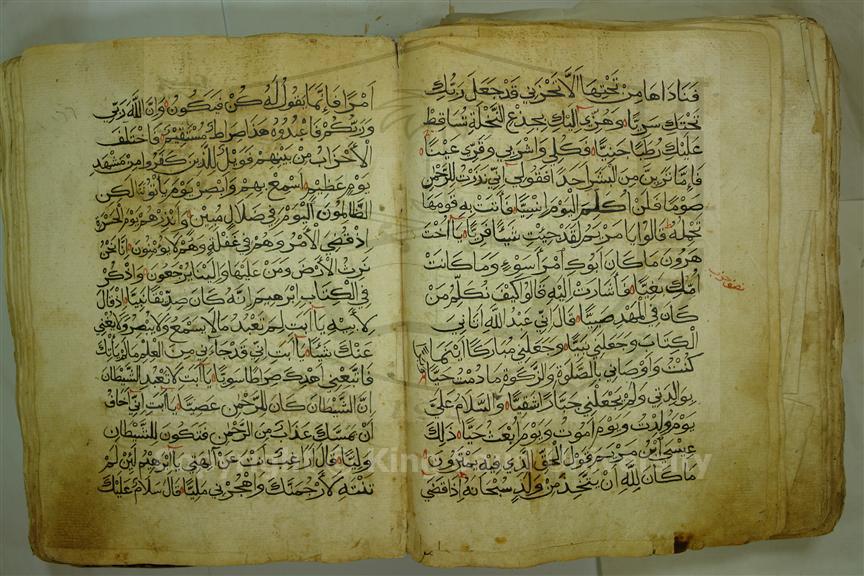 فَنَادَاهَا مِنْ تَحْتِهَا أَلَّا تَحْزَنِي قَدْ جَعَلَ رَبُّكِ
تَحْتَكِ سَرِيًّا وَهُزِّي إِلَيْكِ بِجِذْعِ النَّخْلَةِ تُسَاقِطْ
عَلَيْكِ رُطَبًا جَنِيًّا فَكُلِي وَاشْرَبِي وَقَرِّي عَيْنًا
فَإِمَّا تَرَيِنَّ مِنَ الْبَشَرِ أَحَدًا فَقُولِي إِنِّي نَذَرْتُ لِلرَّحْمٰنِ
صَوْمًا فَلَنْ أُكَلِّمَ الْيَوْمَ إِنْسِيًّا فَأَتَتْ بِهِ قَوْمَهَا
تَحْمِلُهُ قَالُوا يَا مَرْيَمُ لَقَدْ جِئْتِ شَيْئًا فَرِيًّا يَا أُخْتَ
هٰرُونَ مَا كَانَ أَبُوكِ امْرَأَ سَوْءٍ وَمَا كَانَتْ
أُمُّكِ بَغِيًّا فَأَشَارَتْ إِلَيْهِ قَالُوا كَيْفَ نُكَلِّمُ مَنْ
كَانَ فِي الْمَهْدِ صَبِيًّا قَالَ إِنِّي عَبْدُ اللهِ آتَانِيَ
الْكِتَابَ وَجَعَلَنِي نَبِيًّا وَجَعَلَنِي مُبَارَكًا أَيْنَمَا
كُنْتُ وَأَوْصَانِي بِالصَّلٰوةِ وَالزَّكٰوةِ مَا دُمْتُ حَيًّا
بِوَالِدَتِي وَلَمْ يَجْعَلْنِي جَبَّارًا شَقِيًّا وَالسَّلَامُ عَلَيَّ
يَوْمَ وُلِدْتُ وَيَوْمَ أَمُوتُ وَيَوْمَ أُبْعَثُ حَيًّا ذٰلِكَ
عِيسَى ابْنُ مَرْيَمَ قَوْلَ الْحَقِّ الَّذِي فِيهِ يَمْتَرُونَ
مَا كَانَ لِلّٰهِ أَنْ يَتَّخِذَ مِنْ وَلَدٍ سُبْحَانَهُ إِذَا قَضَى
نصف حزب
أَمْرًا فَإِنَّمَا يَقُولُ لَهُ كُنْ فَيَكُونُ وَإِنَّ اللهَ رَبِّي
وَرَبُّكُمْ فَاعْبُدُوهُ هٰذَا صِرَاطٌ مُسْتَقِيمٌ فَاخْتَلَفَ
الْأَحْزَابُ مِنْ بَيْنِهِمْ فَوَيْلٌ لِلَّذِينَ كَفَرُوا مِنْ مَشْهَدِ
يَوْمٍ عَظِيمٍ أَسْمِعْ بِهِمْ وَأَبْصِرْ يَوْمَ يَأْتُونَنَا لٰكِنِ
الظَّالِمُونَ الْيَوْمَ فِي ضَلَالٍ مُبِينٍ وَأَنْذِرْهُمْ يَوْمَ الْحَسْرَةِ
إِذْ قُضِيَ الْأَمْرُ وَهُمْ فِي غَفْلَةٍ وَهُمْ لَا يُؤْمِنُونَ إِنَّا نَحْنُ
نَرِثُ الْأَرْضَ وَمَنْ عَلَيْهَا وَإِلَيْنَا يُرْجَعُونَ وَاذْكُرْ
فِي الْكِتَابِ إِبْرٰهِيمَ إِنَّهُ كَانَ صِدِّيقًا نَبِيًّا إِذْ قَالَ
لِأَبِيهِ يَا أَبَتِ لِمَ تَعْبُدُ مَا لَا يَسْمَعُ وَلَا يُبْصِرُ وَلَا يُغْنِي
عَنْكَ شَيْئًا يَا أَبَتِ إِنِّي قَدْ جَاءَنِي مِنَ الْعِلْمِ مَا لَمْ يَأْتِكَ
فَاتَّبِعْنِي أَهْدِكَ صِرَاطًا سَوِيًّا يَا أَبَتِ لَا تَعْبُدِ الشَّيْطَانَ
إِنَّ الشَّيْطَانَ كَانَ لِلرَّحْمٰنِ عَصِيًّا يَا أَبَتِ إِنِّي أَخَافُ
أَنْ يَمَسَّكَ عَذَابٌ مِنَ الرَّحْمٰنِ فَتَكُونَ لِلشَّيْطَانِ
وَلِيًّا قَالَ أَرَاغِبٌ أَنْتَ عَنْ آلِهَتِي يَا إِبْرٰهِيمُ لَئِنْ لَمْ
تَنْتَهِ لَأَرْجُمَنَّكَ وَاهْجُرْنِي مَلِيًّا قَالَ سَلَامٌ عَلَيْكَ